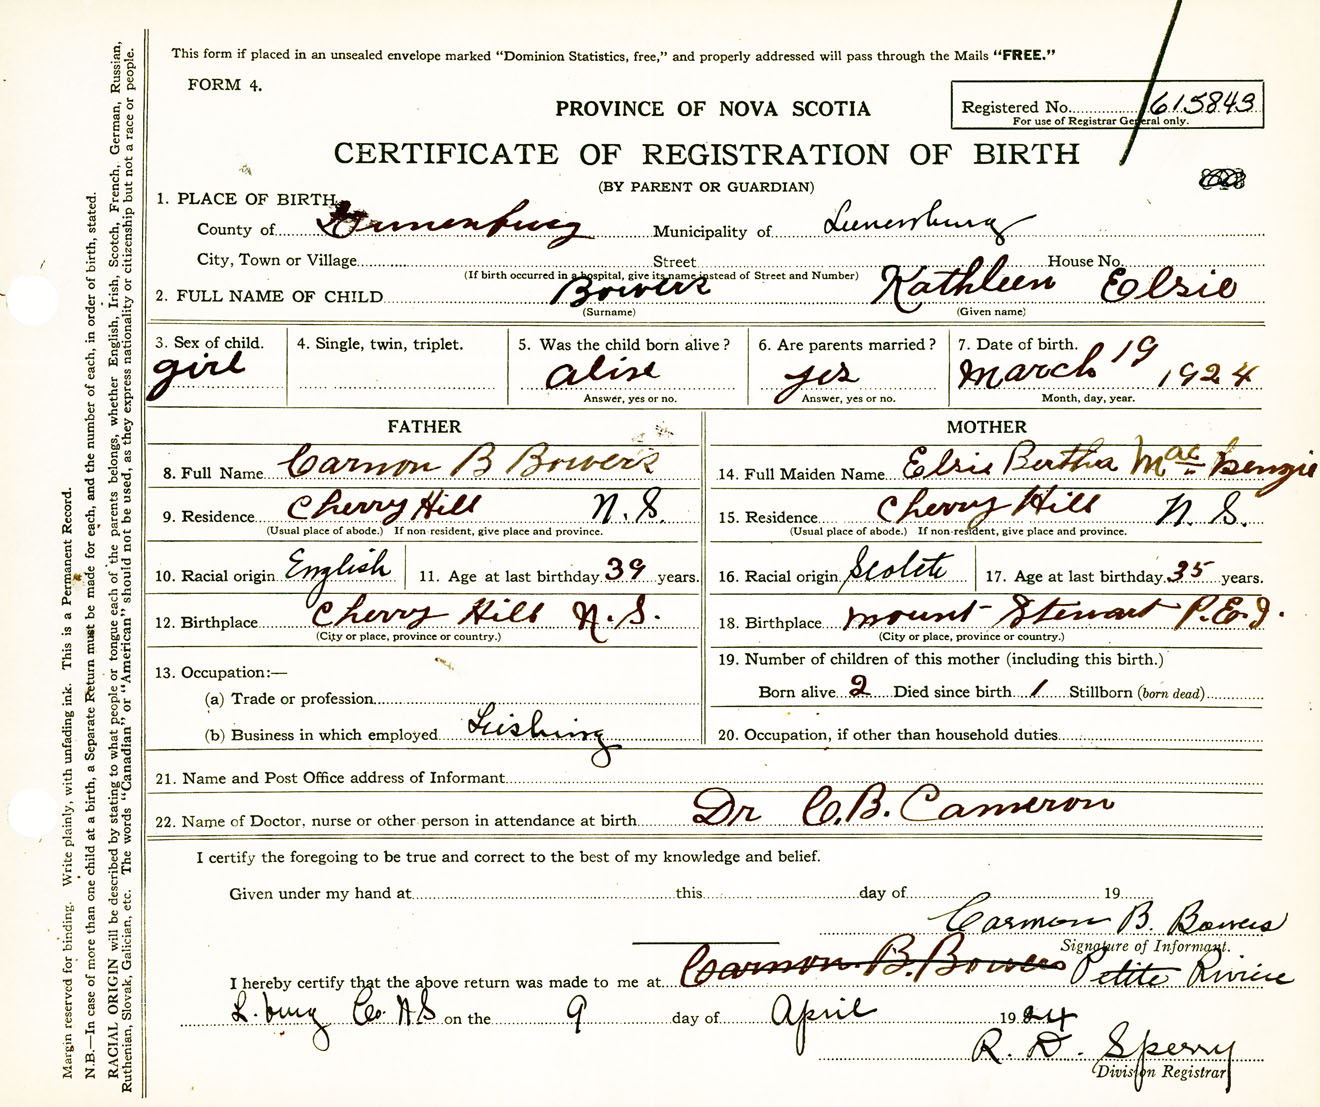 This form if placed in an unsealed envelope marked “Dominion Statistics, free,” and properly addressed will pass through the Mails “FREE.”
FORM 4.
Registered No. 615843
For use of Registrar General only.
PROVINCE OF NOVA SCOTIA
CERTIFICATE OF REGISTRATION OF BIRTH
(BY PARENT OR GUARDIAN)
1. PLACE OF BIRTH
County of Lunenburg Municipality of Lunenburg
City, Town or Village Street House No.
(If birth occurred in a hospital, give its name instead of Street and Number)
2. FULL NAME OF CHILD Bowers Kathleen Elsie
(Surname) (Given name)
3. Sex of child. 4. Single, twin, triplet. 5. Was the child born alive? 6. Are parents married? 7. Date of birth.
girl alive yes March 19 1924
Answer, yes or no. Answer, yes or no. Month, day, year.
FATHER MOTHER
8. Full Name Carmon B Bowers 14. Full Maiden Name Elsie Bertha Mac Kenzie
9. Residence Cherry Hill N. S. 15. Residence Cherry Hill N. S.
(Usual place of abode.) If non-resident, give place and province. (Usual place of abode.) If non-resident, give place and province.
10. Racial origin English 11. Age at last birthday 39 years. 16. Racial origin 17. Age at last birthday 35 years.
12. Birthplace Cherry Hill N. S. 18. Birthplace Mount Stewart P.E.I.
(City or place, province or country.) (City or place, province or country.)
19. Number of children of this mother (including this birth.)
13. Occupation:—
(a) Trade or profession Born alive 2 Died since birth 1 Stillborn (born dead)
(b) Business in which employed Fishing 20. Occupation, if other than household duties
21. Name and Post Office address of Informant
22. Name of Doctor, nurse or other person in attendance at birth Dr C.B. Cameron
I certify the foregoing to be true and correct to the best of my knowledge and belief.
Given under my hand at this day of 19
Carmon B. Bowers
Signature of Informant.
I hereby certify that the above return was made to me at Carmon B. Bowers Petite Riviere
L.burg Co. N S on the 9 day of April 1924
R. D. Sperry
Division Registrar
Margin reserved for binding. Write plainly, with unfading ink. This is a Permanent Record.
N.B.—In case of more than one child at a birth, a Separate Return must be made for each, and the number of each, in order of birth, stated.
RACIAL ORIGIN will be described by stating to what people or tongue each of the parents belongs, whether English, Irish, Scotch, French, German, Russian,
Ruthenian, Slovak, Galician, etc. The words “Canadian” or “American” should not be used, as they express nationality or citizenship but not a race or people.